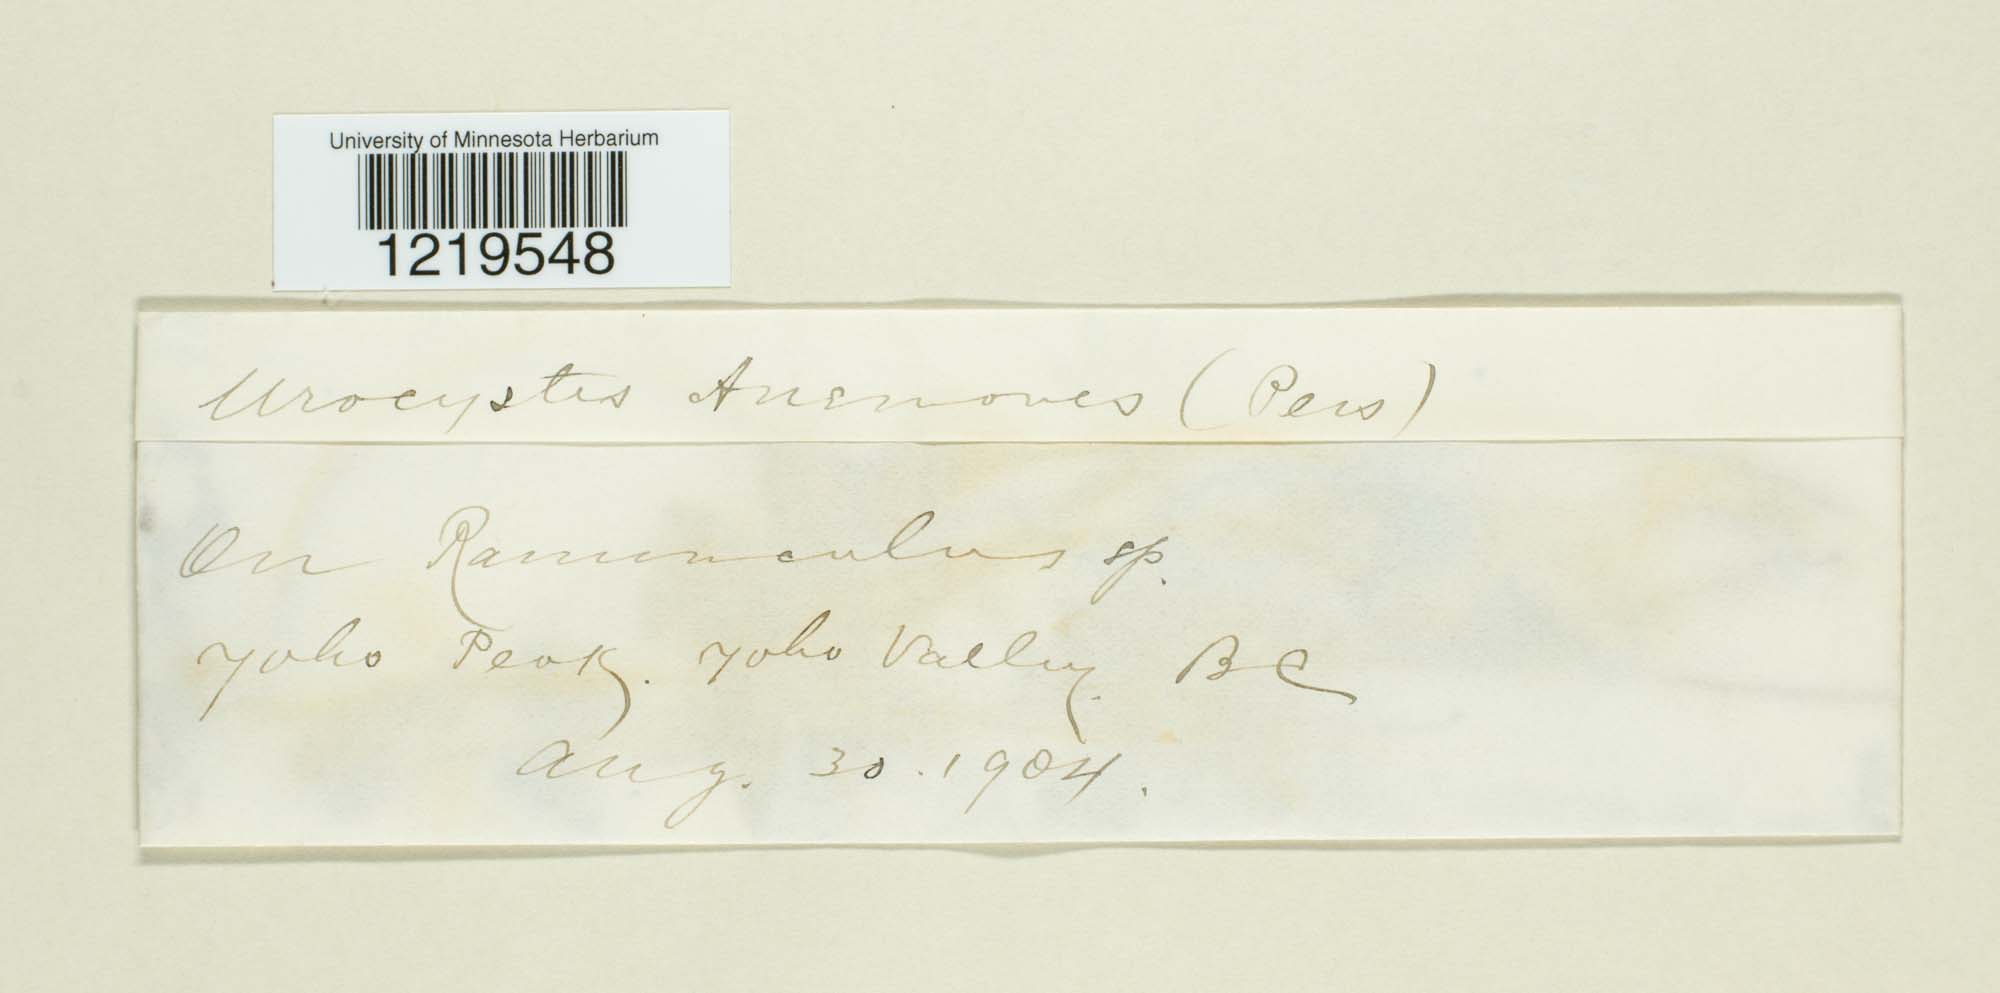 University of Minnesota Herbarium
1219548
Urocystis Anemones (Pers)
On Ranunculus sp.
Yoho Peak. Yoho Valley. BC
Aug. 30. 1904.